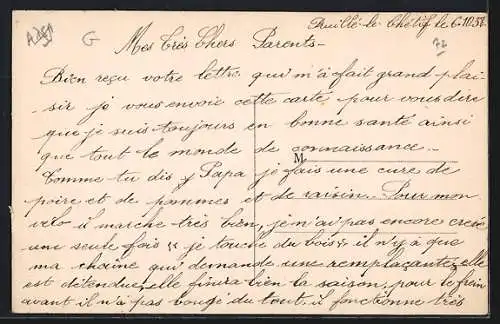 Ruillé-le-Chétif le 6.10.51
A2451 G 72
Mes très Chers Parents-
Bien reçu votre lettre qui m'a fait grand plai-
sir je vous envoie cette carte pour vous dire
que je suis toujours en bonne santé ainsi
que tout le monde de connaissance.-
M
Comme tu dis y Papa je fais une cure de
poire et de pommes et de raisin. Pour mon
vélo il marche très bien, je n'ai pas encore crevé
une seule fois "je touche du bois" il n'y a que
ma chaîne qui demande une remplaçante, elle
est détendue, elle finira bien la saison, pour le frein
avant il n'a pas bougé du tout, il fonctionne très